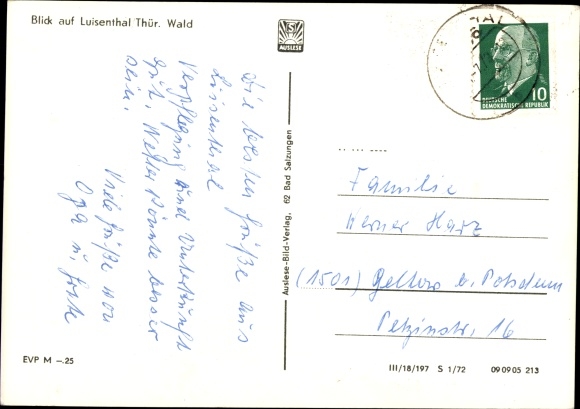 Blick auf Luisenthal Thür. Wald
AUSLESE
Die besten Grüße aus
Luisenthal
Verpflegung und Unterkunft
gut, Wetter könnte besser
sein.
Viele Grüße von
Opa u.
Auslese-Bild-Verlag, 62 Bad Salzungen
10
DEUTSCHE
DEMOKRATISCHE REPUBLIK
Familie
Werner Harz
(1501) Geltow b. Potsdam
Petzinstr. 16
EVP M –.25
III/18/197 S 1/72 09 09 05 213